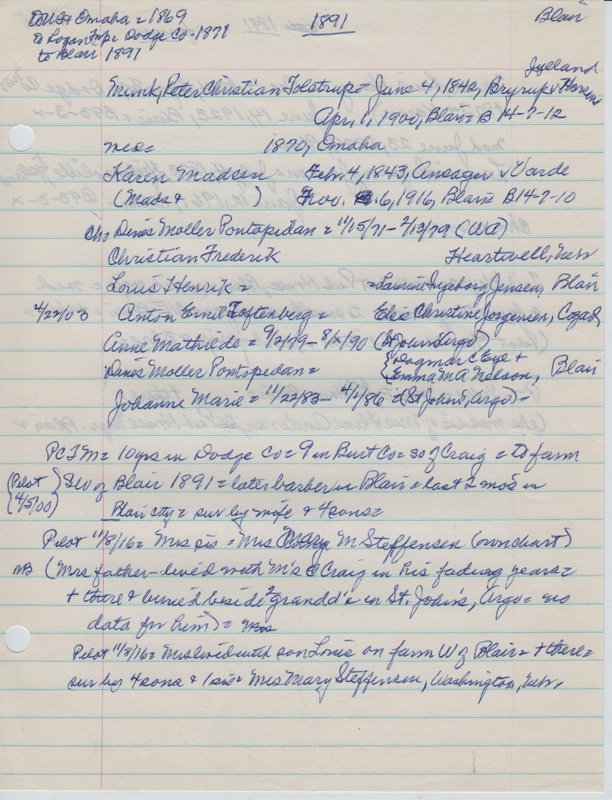 to USA Omaha = 1869
to Logan Twp Dodge Co - 1871
to Blair 1891
1891
Blair
Jylland
Munk, Peter Christian Tolstrup = June 4, 1842, Bryrup v Horsens
April 1, 1900, Blair = B 14-7-12
med = 1870, Omaha
Karen Madsen Feb. 4, 1843, Ansager v Varde
(Mads & ) Nov. 6, 1916, Blair B14-7-10
Ch = Denis Moller Pontopedan = 11/15/71 - 2/13/79 (WA)
Christian Frederik Heartwell, Nebr
Louis Henrik = = Laurine Ingeborg Jensen, Blair
4/22/03 Anton Emil Toftenberg = Elsie Christine Jorgensen, Cozad
Anne Mathilde = 9/2/79 - 8/2/90 (St Johns Argo)
Denis Moller Pontopedan = { Dagmar C Eye +
Emma M A Nelson, Blair
Johanne Marie = 11/22/83 - 4/1/86 = (St John's, Argo) =
PCTM = 10 yrs in Dodge Co = 9 in Burt Co = SO of Craig = to farm
(Pilot 4/5/00) SW of Blair 1891 = later barber in Blair = last 2 mos in
Blair city = sur by wife & 4 sons =
Pilot 11/8/16 = Mrs sis = Mrs Mary M Steffensen (own chart)
NB (Mrs father - lived with M's @ Craig in his fading years =
+ there & buried beside 2 grandd's in St. John's, Argo = no
data for him) =
Pilot 11/8/16 = Mrs lived with son Louis on farm W of Blair = + there =
sur by 4 sons & 1 sis = Mrs Mary Steffensen, Washington, Nebr.